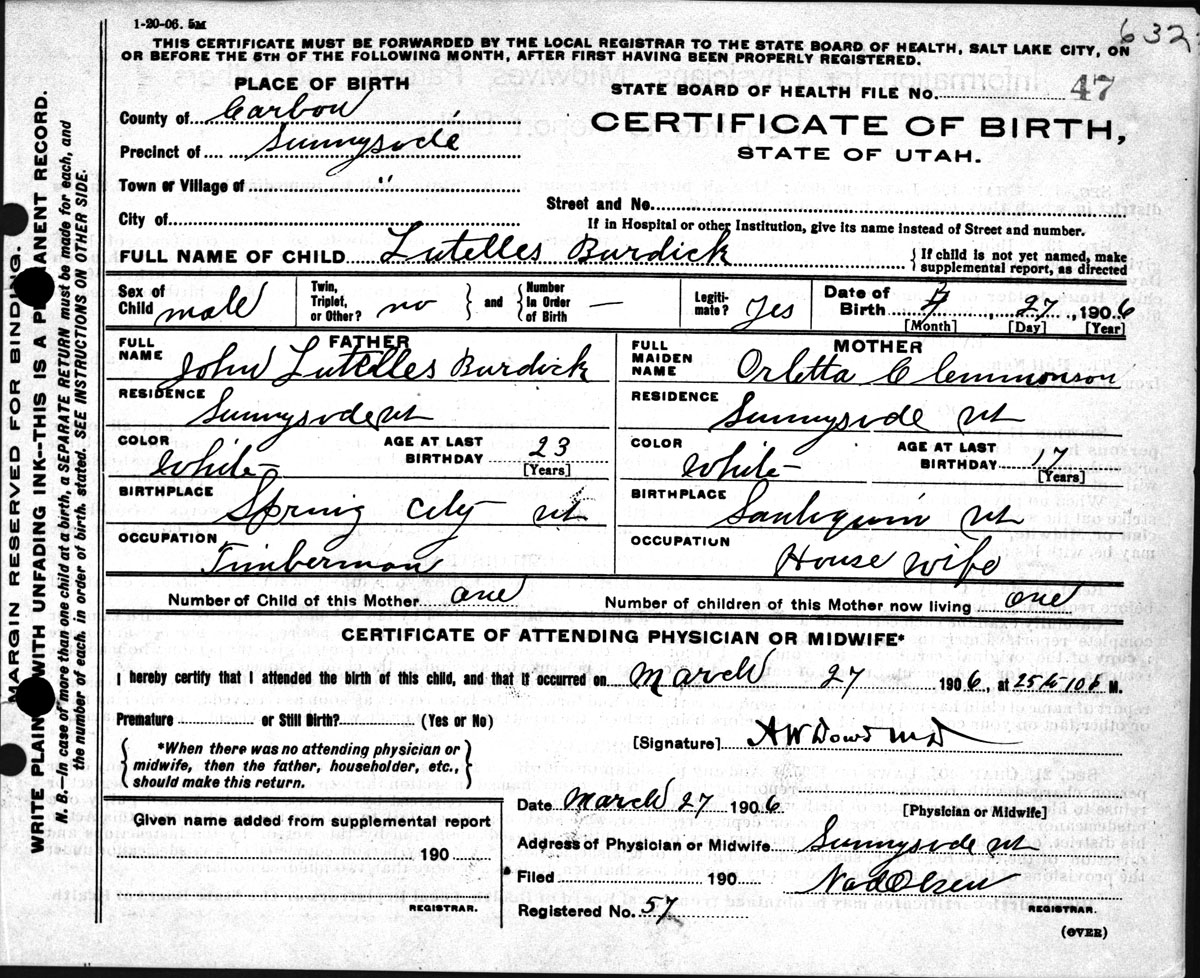 1-20-06. 5M
632
THIS CERTIFICATE MUST BE FORWARDED BY THE LOCAL REGISTRAR TO THE STATE BOARD OF HEALTH, SALT LAKE CITY, ON
OR BEFORE THE 5TH OF THE FOLLOWING MONTH, AFTER FIRST HAVING BEEN PROPERLY REGISTERED.
MARGIN RESERVED FOR BINDING.
WRITE PLAINLY WITH UNFADING INK--THIS IS A PERMANENT RECORD.
N. B.—In case of more than one child at a birth, a SEPARATE RETURN must be made for each, and
the number of each, in order of birth, stated. SEE INSTRUCTIONS ON OTHER SIDE.
PLACE OF BIRTH
STATE BOARD OF HEALTH FILE No. 47
County of Carbon
CERTIFICATE OF BIRTH,
Precinct of Sunnyside
STATE OF UTAH.
Town or Village of "
Street and No.
City of
If in Hospital or other Institution, give its name instead of Street and number.
FULL NAME OF CHILD Lutelles Burdick
If child is not yet named, make
supplemental report, as directed
Sex of Child male
Twin, Triplet, or Other? no
and
Number In Order of Birth —
Legiti-mate? Yes
Date of Birth 27, 1906
[Month] [Day] [Year]
FATHER
FULL NAME John Lutelles Burdick
RESIDENCE Sunnyside ut
COLOR White
AGE AT LAST BIRTHDAY 23
[Years]
BIRTHPLACE Spring City ut
OCCUPATION Timberman
MOTHER
FULL MAIDEN NAME Orletta Clemmonson
RESIDENCE Sunnyside ut
COLOR White
AGE AT LAST BIRTHDAY 17
[Years]
BIRTHPLACE Santiquin ut
OCCUPATION House wife
Number of Child of this Mother one
Number of children of this Mother now living one
CERTIFICATE OF ATTENDING PHYSICIAN OR MIDWIFE*
I hereby certify that I attended the birth of this child, and that it occurred on March 27 1906, at 25 to 10 P M.
Premature or Still Birth? (Yes or No)
*When there was no attending physician or
midwife, then the father, householder, etc.,
should make this return.
[Signature] A W Dowd MD
Date March 27 1906
[Physician or Midwife]
Given name added from supplemental report
190
REGISTRAR.
Address of Physician or Midwife Sunnyside ut
Filed 190
Olsen
REGISTRAR.
Registered No. 57
(OVER)